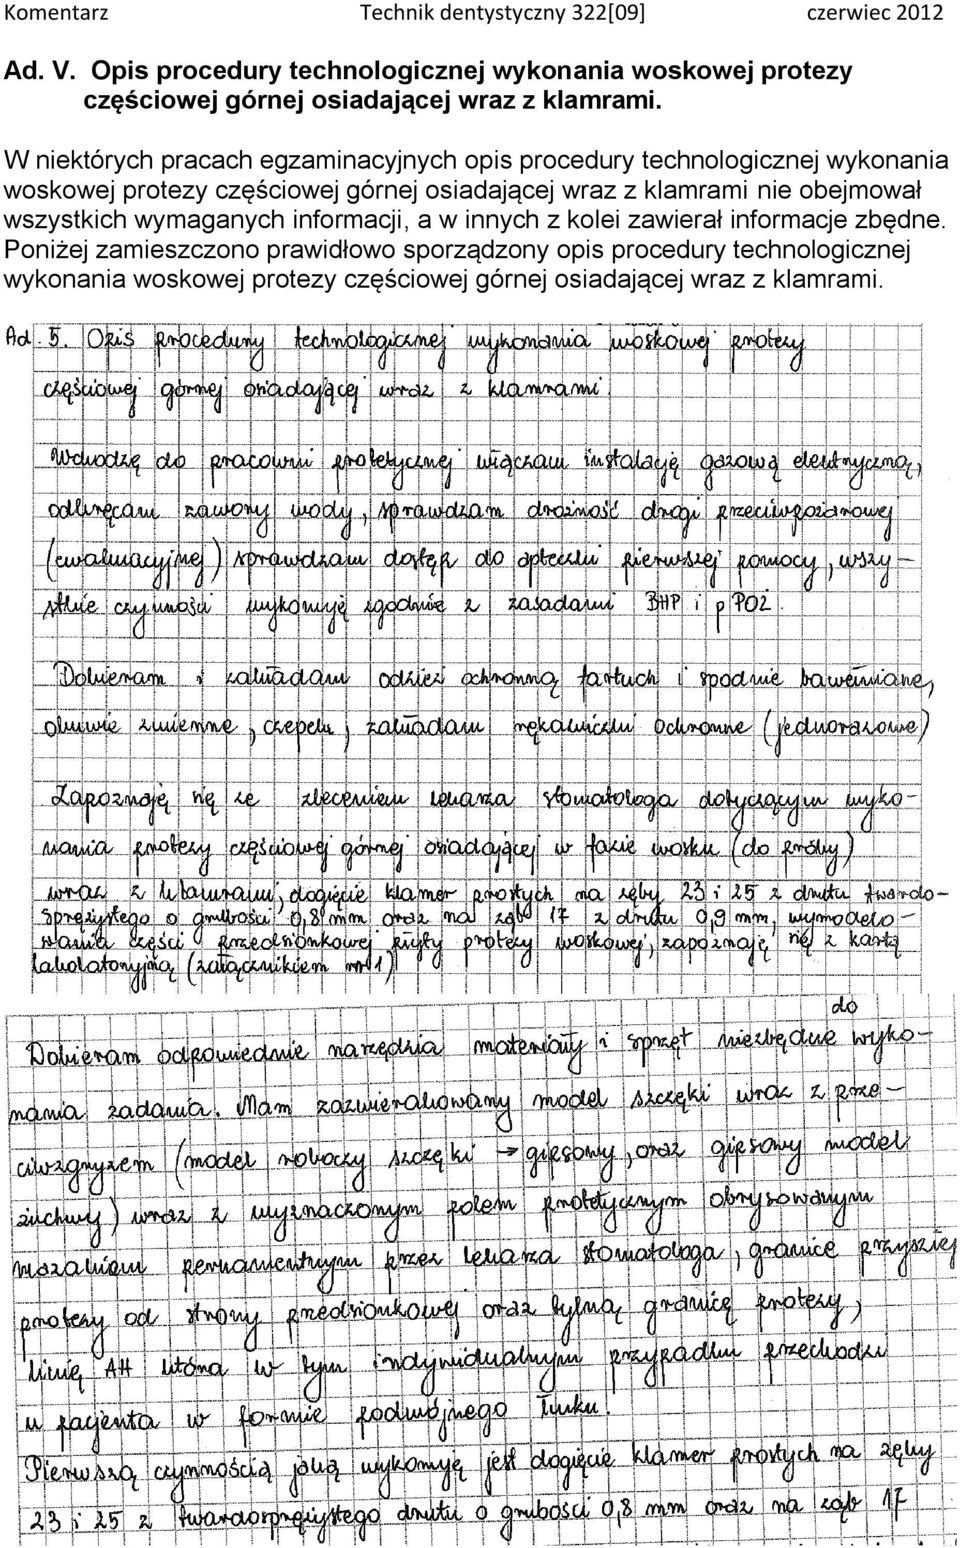 Komentarz Technik dentystyczny 322[09] czerwiec 2012
Ad. V. Opis procedury technologicznej wykonania woskowej protezy
częściowej górnej osiadającej wraz z klamrami.
W niektórych pracach egzaminacyjnych opis procedury technologicznej wykonania
woskowej protezy częściowej górnej osiadającej wraz z klamrami nie obejmował
wszystkich wymaganych informacji, a w innych z kolei zawierał informacje zbędne.
Poniżej zamieszczono prawidłowo sporządzony opis procedury technologicznej
wykonania woskowej protezy częściowej górnej osiadającej wraz z klamrami.
Ad. 5. Opis procedury technologicznej wykonania woskowej protezy
częściowej górnej osiadającej wraz z klamrami.
Wchodzę do pracowni protetycznej włączam instalację gazową elektryczną,
odkręcam zawory wody, sprawdzam drożność drogi przeciwpożarowej
(ewakuacyjnej) sprawdzam dostęp do apteczki pierwszej pomocy, wszy-
stkie czynności wykonuję zgodnie z zasadami BHP i p POŻ.
Dobieram i zakładam odzież ochronną fartuch i spodnie bawełniane,
obuwie zmienne, czepek, zakładam rękawiczki ochronne (jednorazowe)
Zapoznaję się ze zleceniem lekarza stomatologa dotyczącym wyko-
nania protezy częściowej górnej osiadającej w fazie wosku (do próby)
wraz z klamrami, dogięcie klamer prostych na zęby 23 i 25 z drutu twardo-
sprężystego o grubości 0,8 mm oraz na ząb 17 z drutu 0,9 mm, wymodelo-
wania części przedsionkowej płyty protezy woskowej, zapoznaję się z kartą
laboratoryjną (załącznikiem nr 1)
do
Dobieram odpowiednie narzędzia materiały i sprzęt niezbędne wyko-
nania zadania. Mam zazwierakowany model szczęki wraz z prze-
ciwzgryzem (model roboczy szczęki → gipsowy, oraz gipsowy model
żuchwy) wraz z wyznaczonym polem protetycznym obrysowanym
mazakiem permamentnym przez lekarza stomatologa, granice przyszłej
protezy od strony przedsionkowej oraz tylną granicę protezy,
linię AH która w tym indywidualnym przypadku przechodzi
u pacjenta w formie podwójnego łuku.
Pierwszą czynnością jaką wykonuję jest dogięcie klamer prostych na zęby
23 i 25 z twardosprężystego drutu o grubości 0,8 mm oraz na ząb 17